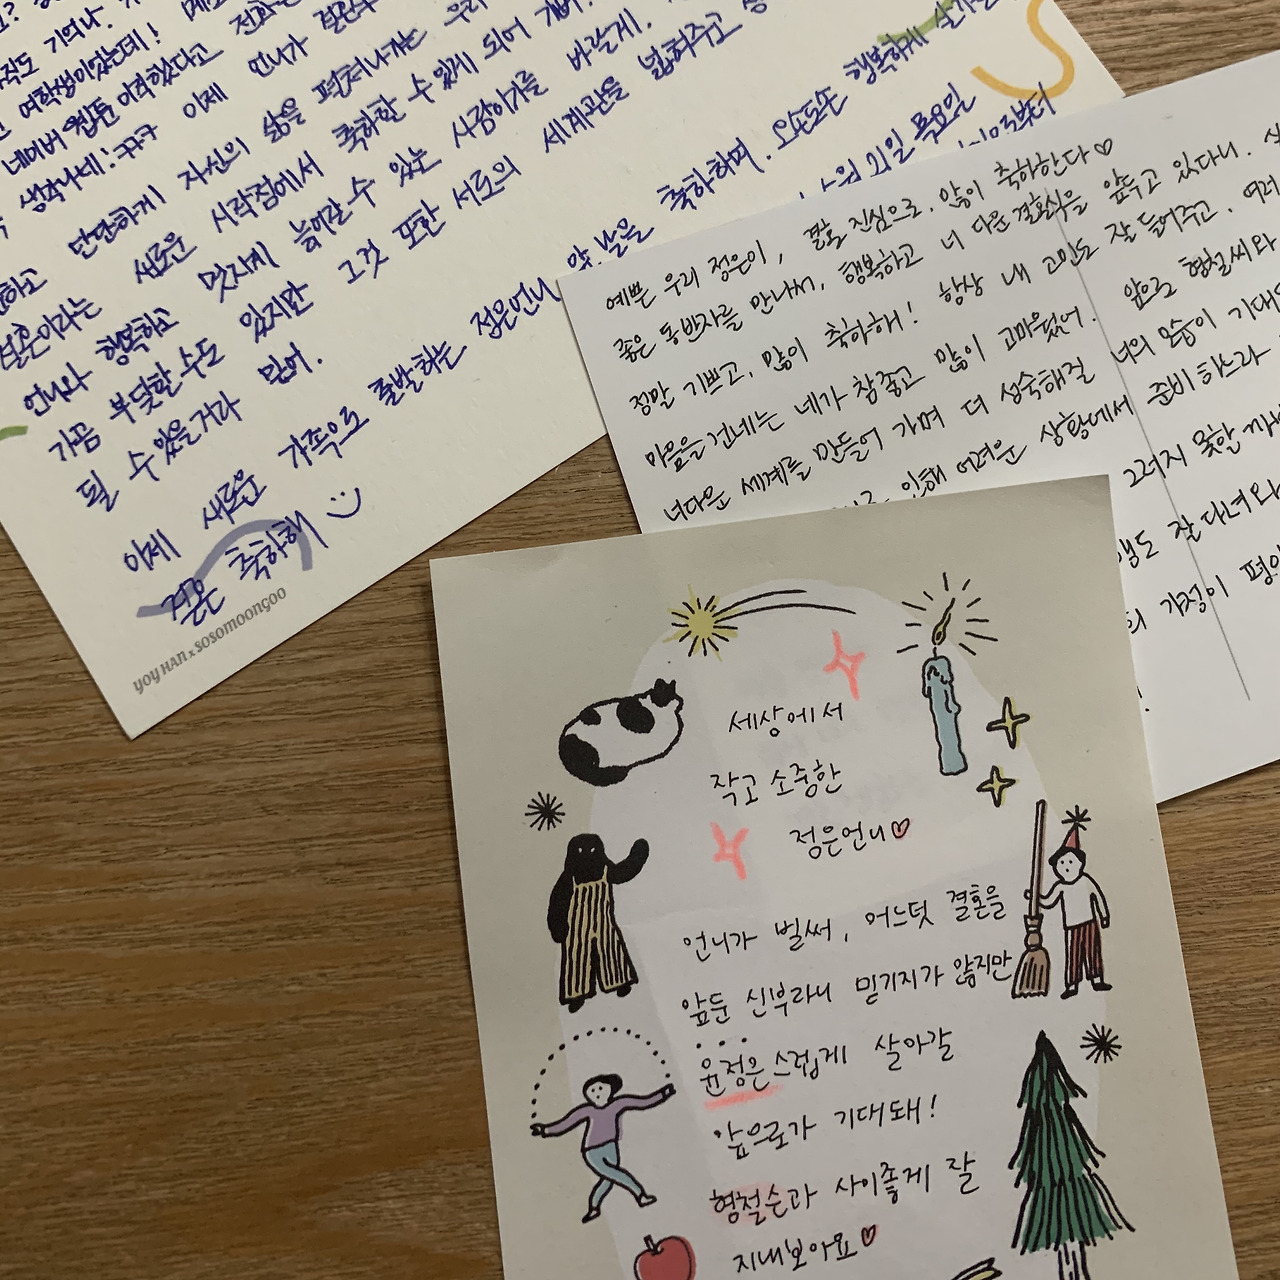 여학생이었는데!
네이버 웹툰 이직했다고
생각나네! ㅋㅋㅋ 이제 언니가
단단하게 자신의 삶을 펼쳐나가는 우리
결혼이라는 새로운 시작점에서 축하할 수 있게 되어
언니와 행복하고 멋지게 늙어갈 수 있는 사람이기를 바랄게.
가끔 부딪힐 수도 있지만 그것 또한 서로의 세계관을 넓혀주고
될 수 있을거라 믿어.
이제 새로운 가족으로 출발하는 정은언니 앞날을 축하하며. 오손도손 행복하게
결혼 축하해 :)
YOY HAN x SOSOMOONGOO
21일 목요일
부터
예쁜 우리 정은이, 결혼 진심으로, 많이 축하한다♡
좋은 동반자를 만나서, 행복하고 너 다운 결혼식을 앞두고 있다니.
정말 기쁘고, 많이 축하해! 항상 내 고민도 잘 들어주고, 여러
마음을 건네는 네가 참 좋고 많이 고마웠어. 앞으로 형철씨와
너다운 세계를 만들어 가며 더 성숙해질 너의 모습이 기대
인해 어려운 상황에서 준비하느라
그러지 못한
잘 다녀와
가정이 평안
세상에서
작고 소중한
정은언니♡
언니가 벌써, 어느덧 결혼을
앞둔 신부라니 믿기지가 않지만
윤정은스럽게 살아갈
앞으로가 기대돼!
형철슨과 사이좋게 잘
지내보아요♡